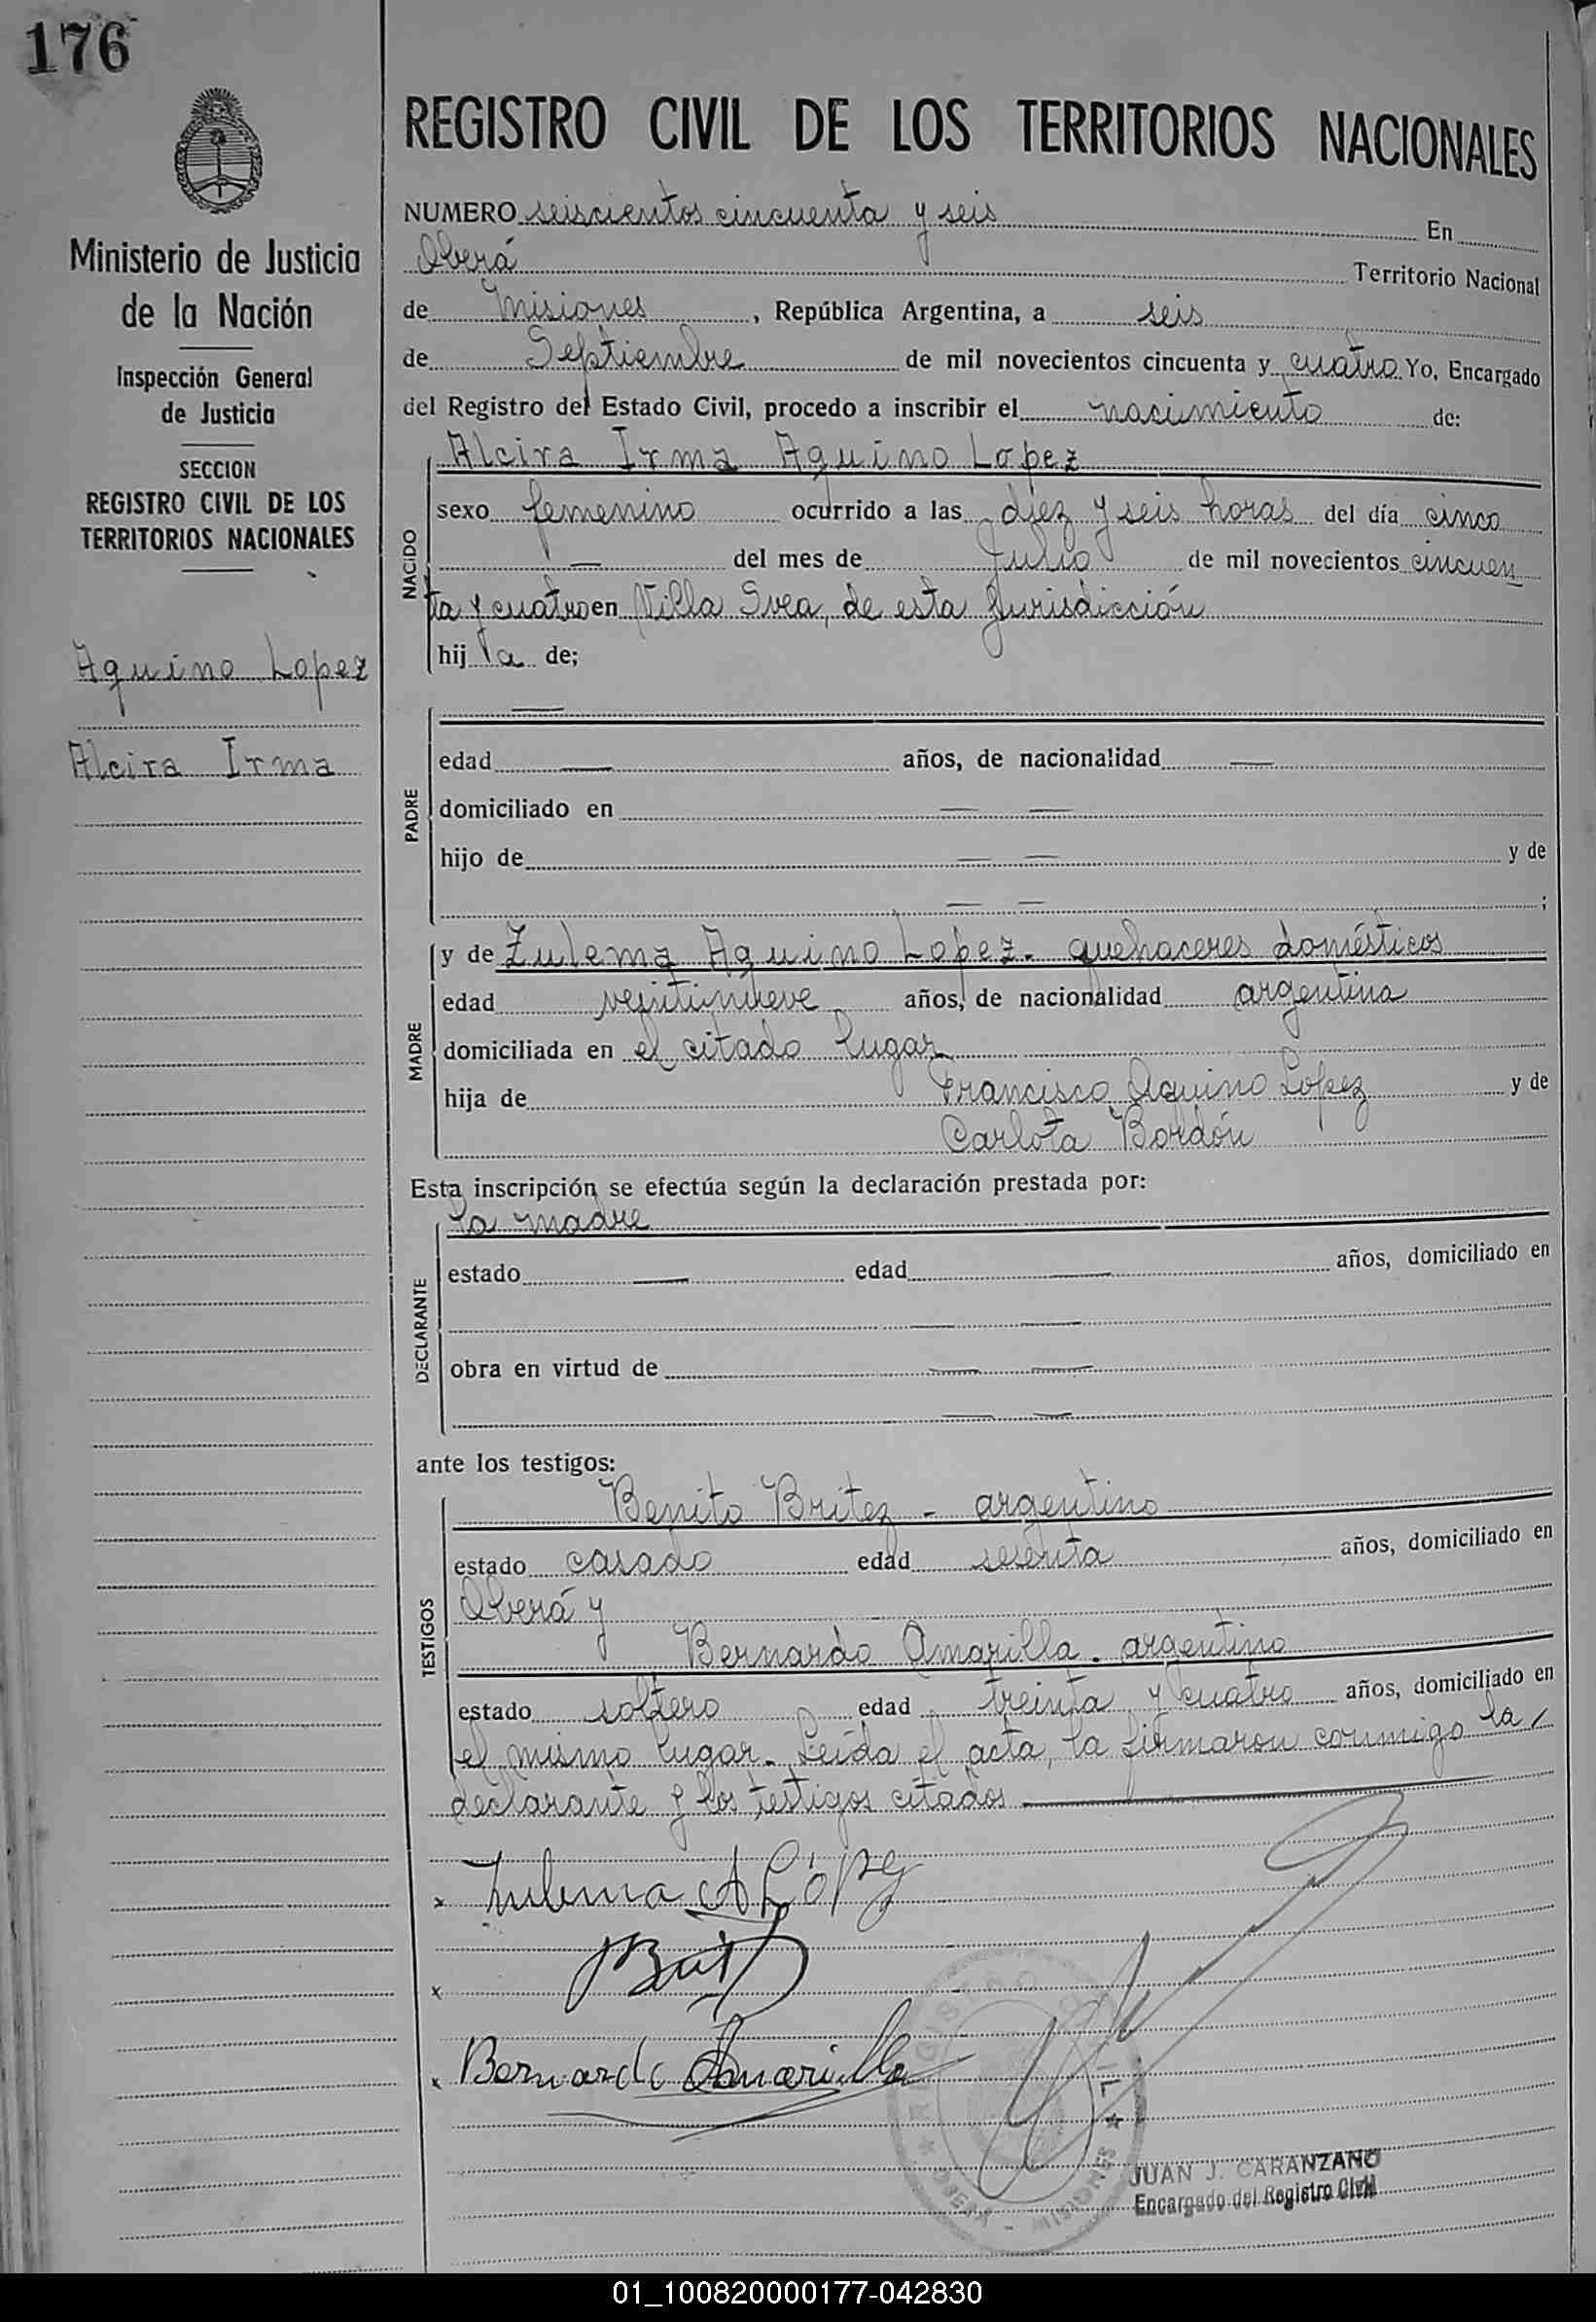 176
Ministerio de Justicia
de la Nación
Inspección General
de Justicia
SECCION
REGISTRO CIVIL DE LOS
TERRITORIOS NACIONALES
Aquino Lopez
Alcira Irma
REGISTRO CIVIL DE LOS TERRITORIOS NACIONALES
NUMERO seiscientos cincuenta y seis En
Oberá Territorio Nacional
de Misiones, República Argentina, a seis
de Septiembre de mil novecientos cincuenta y cuatro Yo, Encargado
del Registro del Estado Civil, procedo a inscribir el nacimiento de:
NACIDO
Alcira Irma Aquino Lopez
sexo femenino ocurrido a las diez y seis horas del día cinco
— del mes de Julio de mil novecientos cincuen
ta y cuatro en Villa Svea, de esta Jurisdicción
hij a de;
PADRE
—
edad — años, de nacionalidad —
domiciliado en — —
hijo de — — y de
— — ;
MADRE
y de Zulema Aquino Lopez. quehaceres domésticos
edad veintinueve años, de nacionalidad argentina
domiciliada en el citado lugar
hija de Francisco Aquino Lopez y de
Carlota Bordón
Esta inscripción se efectúa según la declaración prestada por:
DECLARANTE
la madre
estado — edad — años, domiciliado en
— —
obra en virtud de — —
— —
ante los testigos:
TESTIGOS
Benito Britez - argentino
estado casado edad sesenta años, domiciliado en
Oberá y
Bernardo Amarilla. argentino
estado soltero edad treinta y cuatro años, domiciliado en
el mismo lugar. Leída el acta, la firmaron conmigo la
declarante y los testigos citados —
x Zulema A López
x
x Bernardo Amarilla
REGISTRO CIVIL
OBERÁ - MISIONES
JUAN J. CARANZANO
Encargado del Registro Civil
01_100820000177-042830